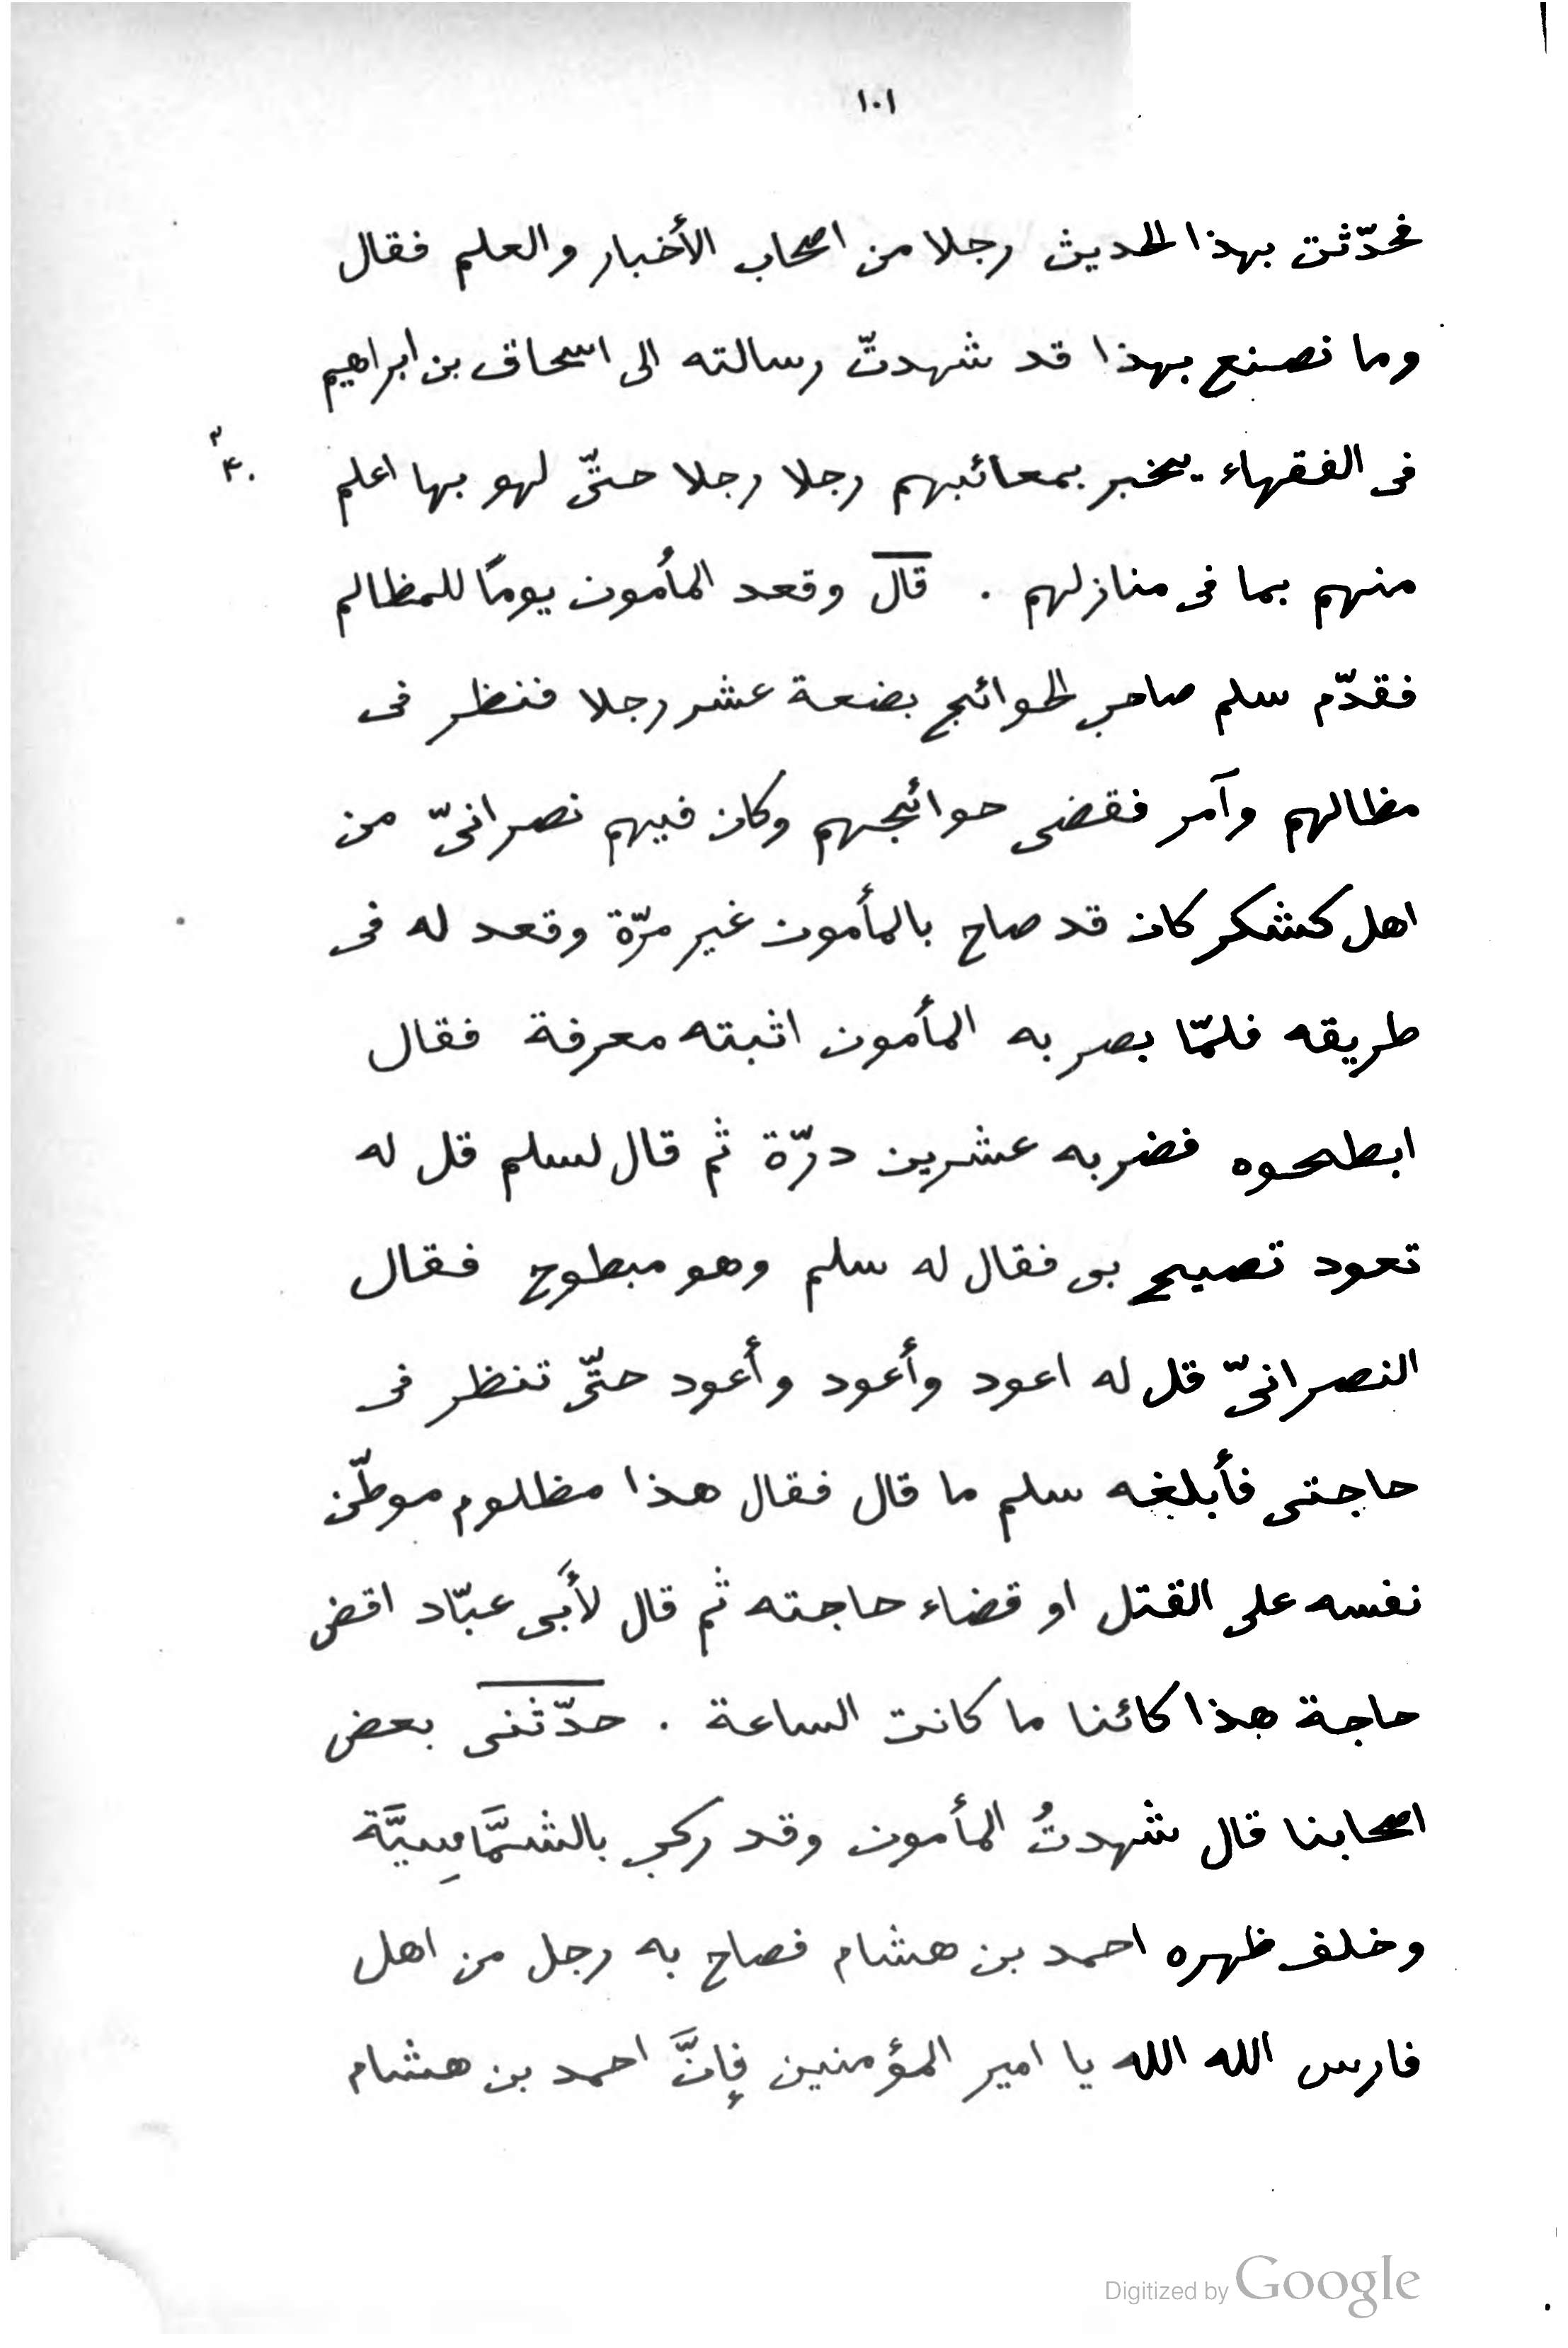 ١٠١
فحدّثت بهذا الحديث رجلا من اصحاب الأخبار والعلم فقال
وما نصنع بهذا قد شهدتّ رسالته الى اسحاق بن ابراهيم
فى الفقهاء يخبر بمعائبهم رجلا رجلا حتّى لهو بها اعلم
منهم بما فى منازلهم . قال وقعد المأمون يومًا للمظالم
فقدّم سلم صاحب الحوائج بضعة عشر رجلا فنظر فى
مظالهم وآمر فقضى حوائجهم وكان فيهم نصرانىّ من
اهل كشكر كان قد صاح بالمأمون غير مرّة وقعد له فى
طريقه فلمّا بصر به المأمون اثبته معرفة فقال
ابطحوه فضربه عشرين درّة ثم قال لسلم قل له
تعود تصيح بى فقال له سلم وهو مبطوح فقال
النصرانىّ قل له اعود وأعود وأعود حتّى تنظر فى
حاجتى فأبلغه سلم ما قال فقال هذا مظلوم موطّن
نفسه على القتل او قضاء حاجته ثم قال لأَبى عبّاد اقض
حاجة هذا كائنا ما كانت الساعة . حدّثنى بعض
اصحابنا قال شهدتُ المأمون وقد ركب بالشمَّاسِيَّة
وخلف ظهره احمد بن هشام فصاح به رجل من اهل
فارس الله الله يا امير المؤمنين فإنَّ احمد بن هشام
Digitized by Google